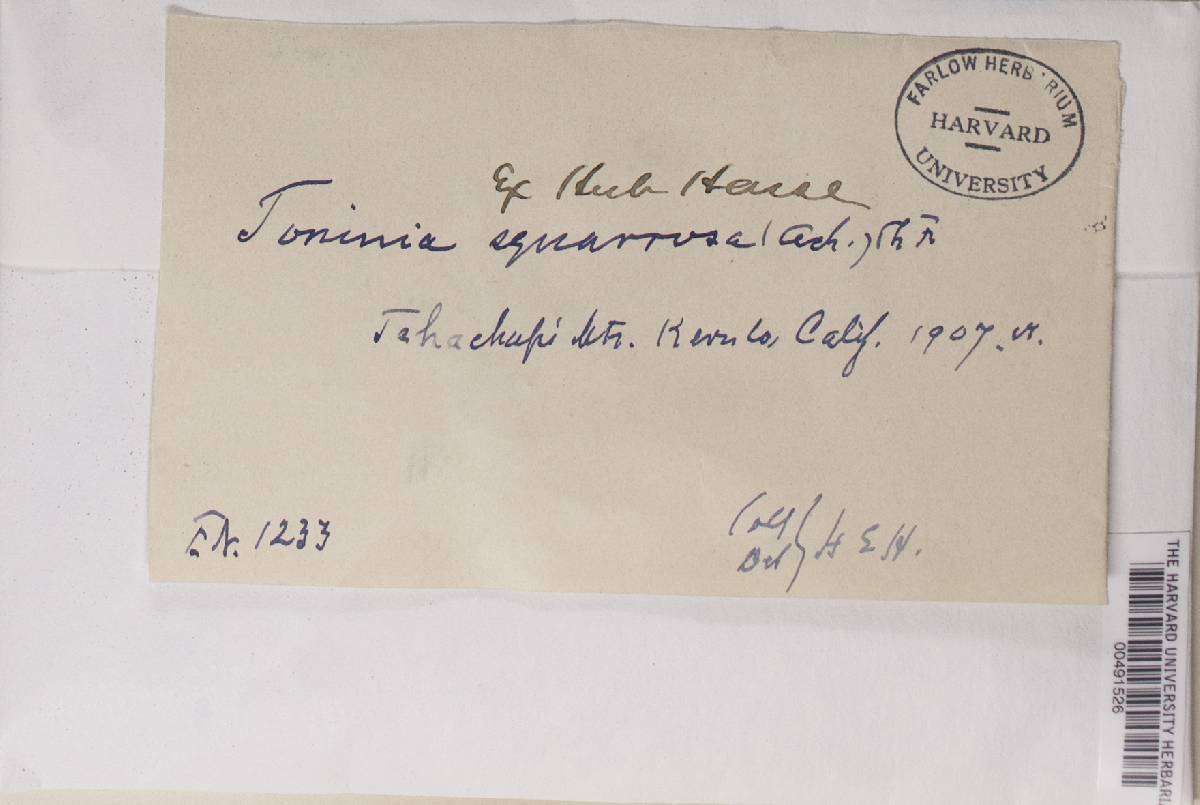 FARLOW HERB RIUM
HARVARD
UNIVERSITY
Ex Herb Hasse
Toninia squarrosa (Ach.) Th Fr
Tehachapi Mts. Kern Co, Calif. 1907.
F.N. 1233
Coll
Det } H E H.
THE HARVARD UNIVERSITY HERBARI
00491526